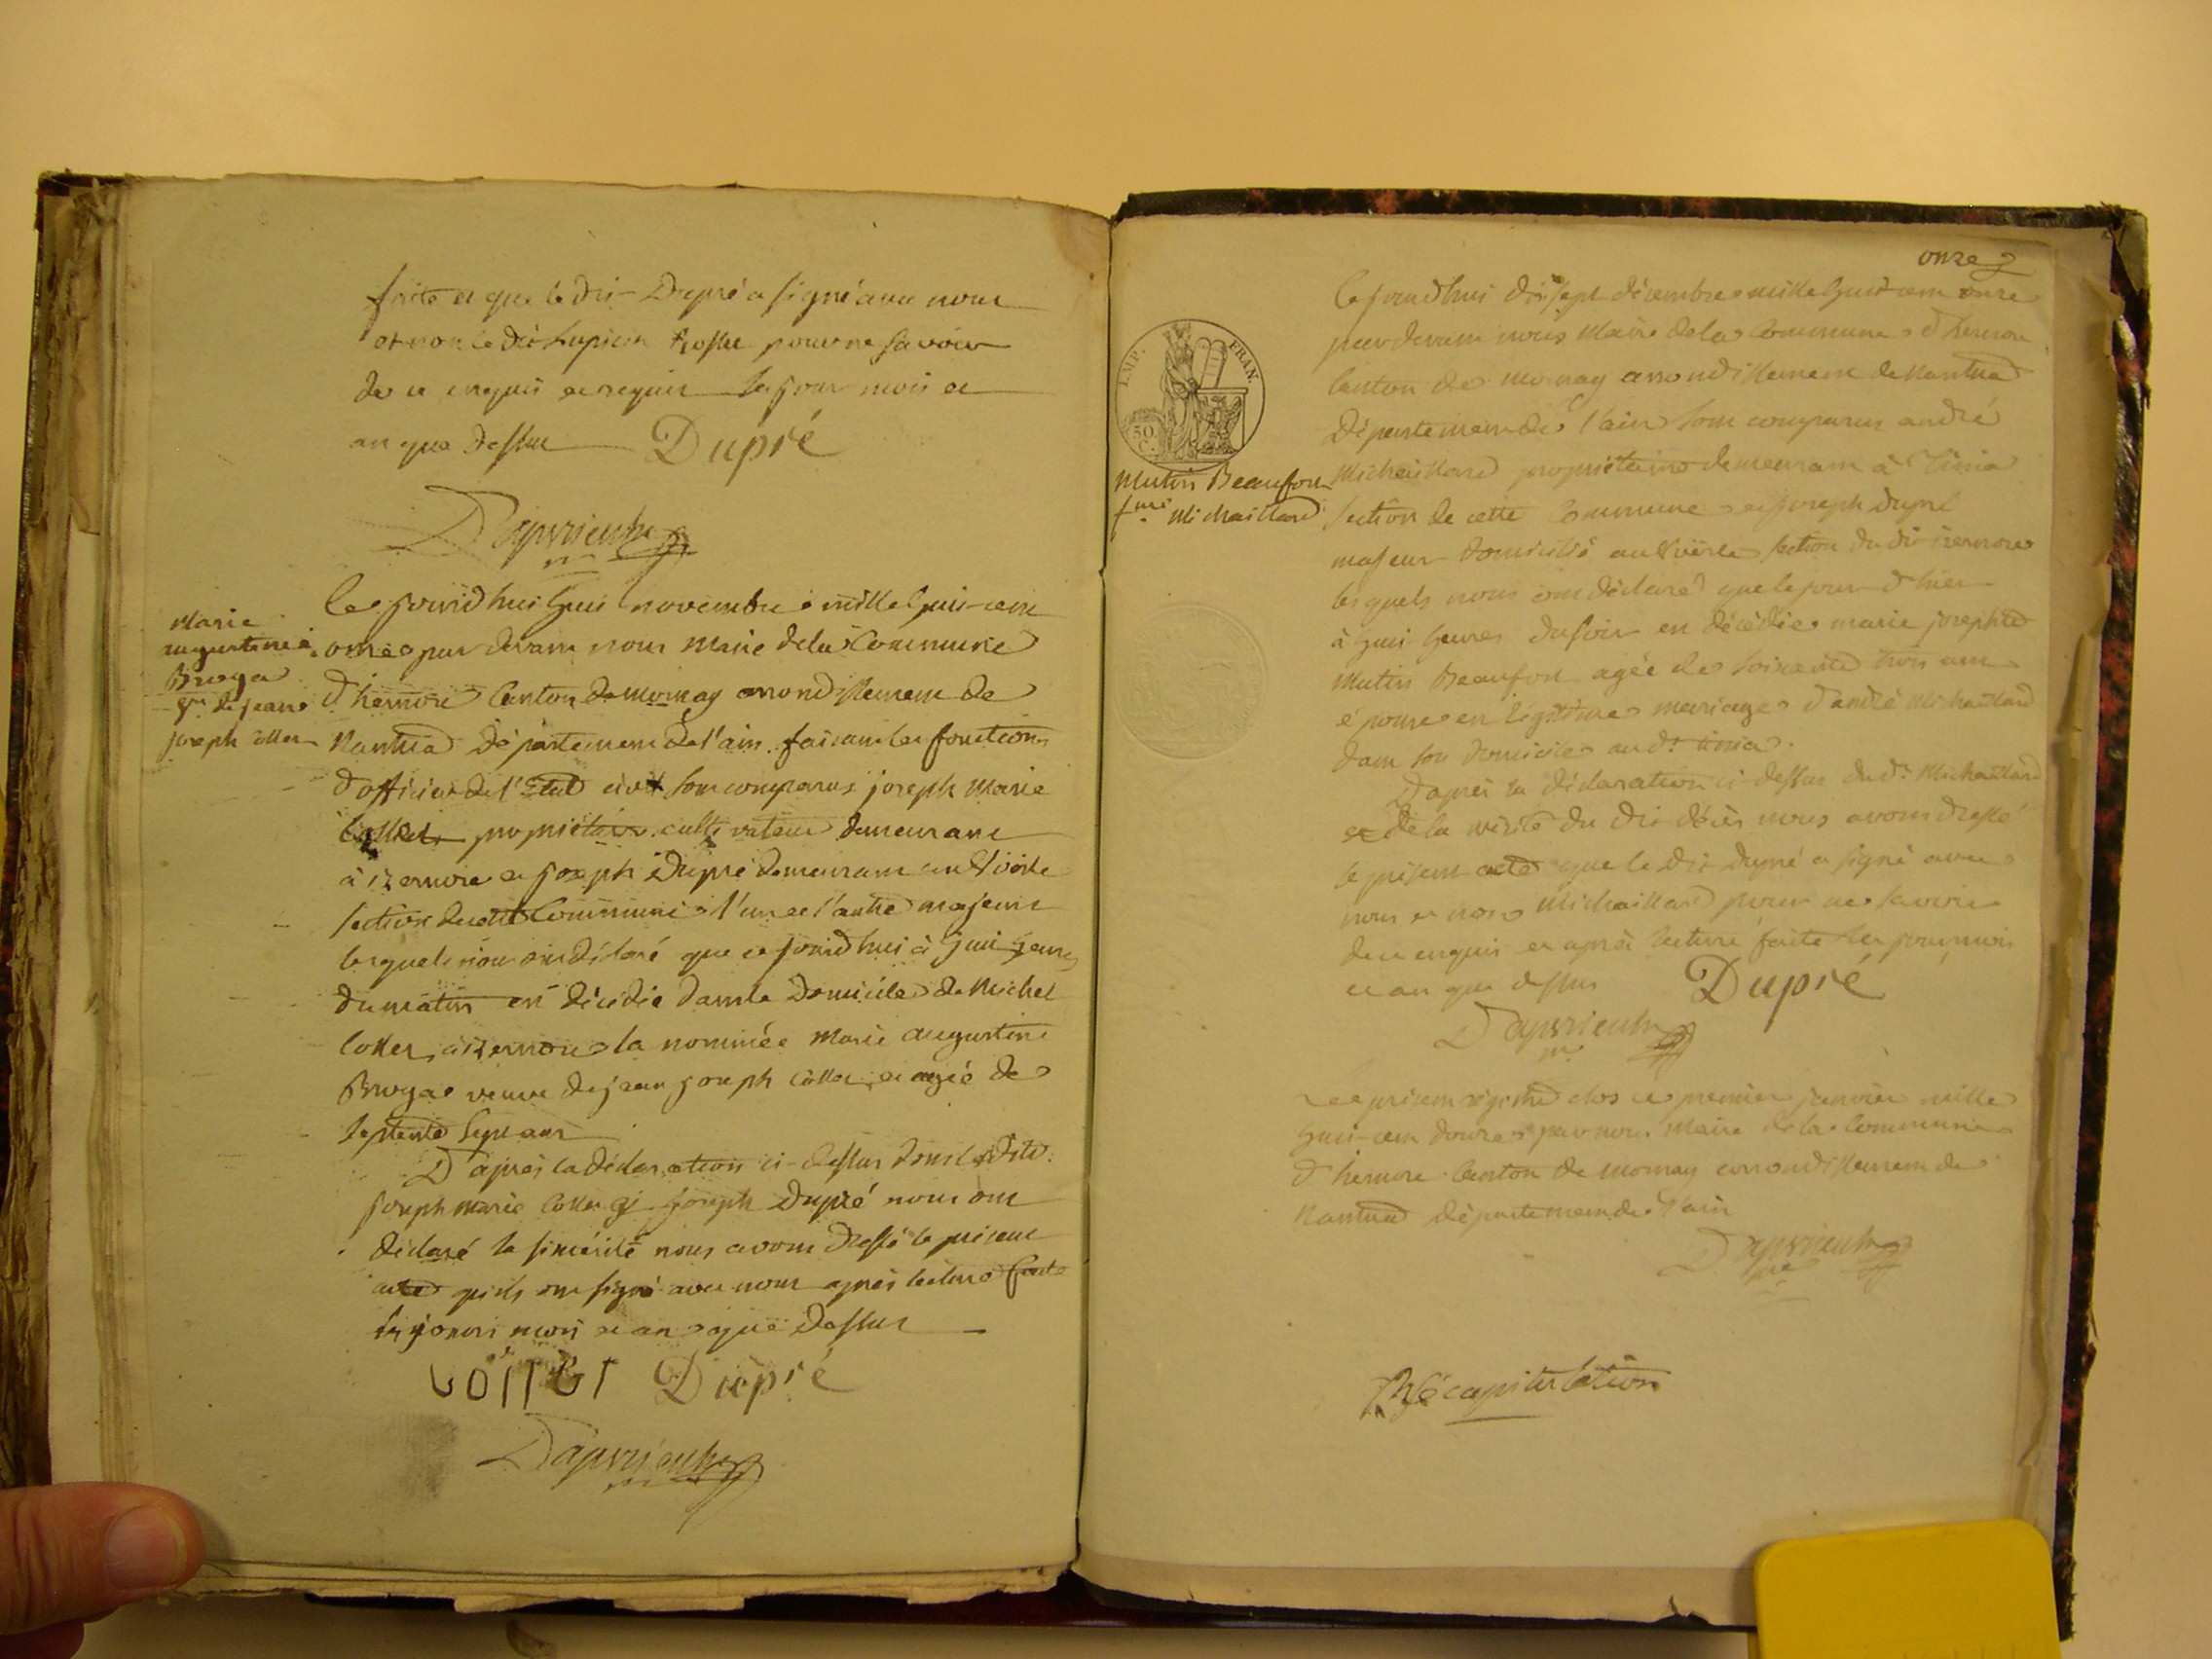 faite et que le dit Dupré a signé avec nous
et non le dit Lupicin pour ne savoir
de ce enquis et requis les jour mois et
an que dessus Dupré
Marie
augustine
Broya
de jean
joseph collet
Ce jourd'hui huit novembre mille huit cent
onze par devant nous Maire de la Commune
d'hernore Canton de mornay arrondissement de
Nantua Département de l'ain faisant les fonctions
d'officier de l'Etat civil sont comparus joseph Marie
Collet propriétaire cultivateur demeurant
à izernore et joseph Dupré demeurant au Voërle
section de cette Commune l'un et l'autre majeurs
lesquels nous ont déclaré que ce jourd'hui à huit heures
du matin est décédée dans le Domicile de Michel
Collet à izernore la nommée Marie augustine
Broya veuve de jean joseph collet et agée de
septente sept ans
D'après la déclaration ci-dessus dont les dits
joseph marie Collet et joseph Dupré nous ont
déclaré la sincérité nous avons dressé le present
acte qu'ils ont signé avec nous après lecture faite
les jours mois et an que dessus
Collet Dupré
onze
IMP. FRAN.
50 C.
Mutin Beaufort
fme Michaillard
Ce jourd'hui dix sept décembre mille huit cent onze
par devant nous Maire de la Commune d'hernore
Canton de mornay arrondissement de Nantua
Département de l'ain sont comparus andré
Michaillard propriétaire demeurant à Tinia
section de cette Commune et joseph Dupré
majeur domicilié au Voërle section du dit izernore
lesquels nous ont déclaré que le jour d'hier
à huit heures du soir est décédée marie josephte
Mutin Beaufort agée de soixante trois ans
épouse en légitime mariage d'andré Michaillard
dans son domicile au dt tinia.
D'après la déclaration ci dessus du dt Michaillard
et de la vérité du dit décès nous avons dressé
le présent acte que le dit dupré a signé avec
nous et non Michaillard pour ne savoir
de ce enquis et après lecture faite les jour mois
et an que dessus Dupré
Le présent registre clos ce premier janvier mille
huit-cent douze par nous maire de la Commune
d'hernore Canton de mornay arrondissement de
Nantua département de l'ain
Récapitulation